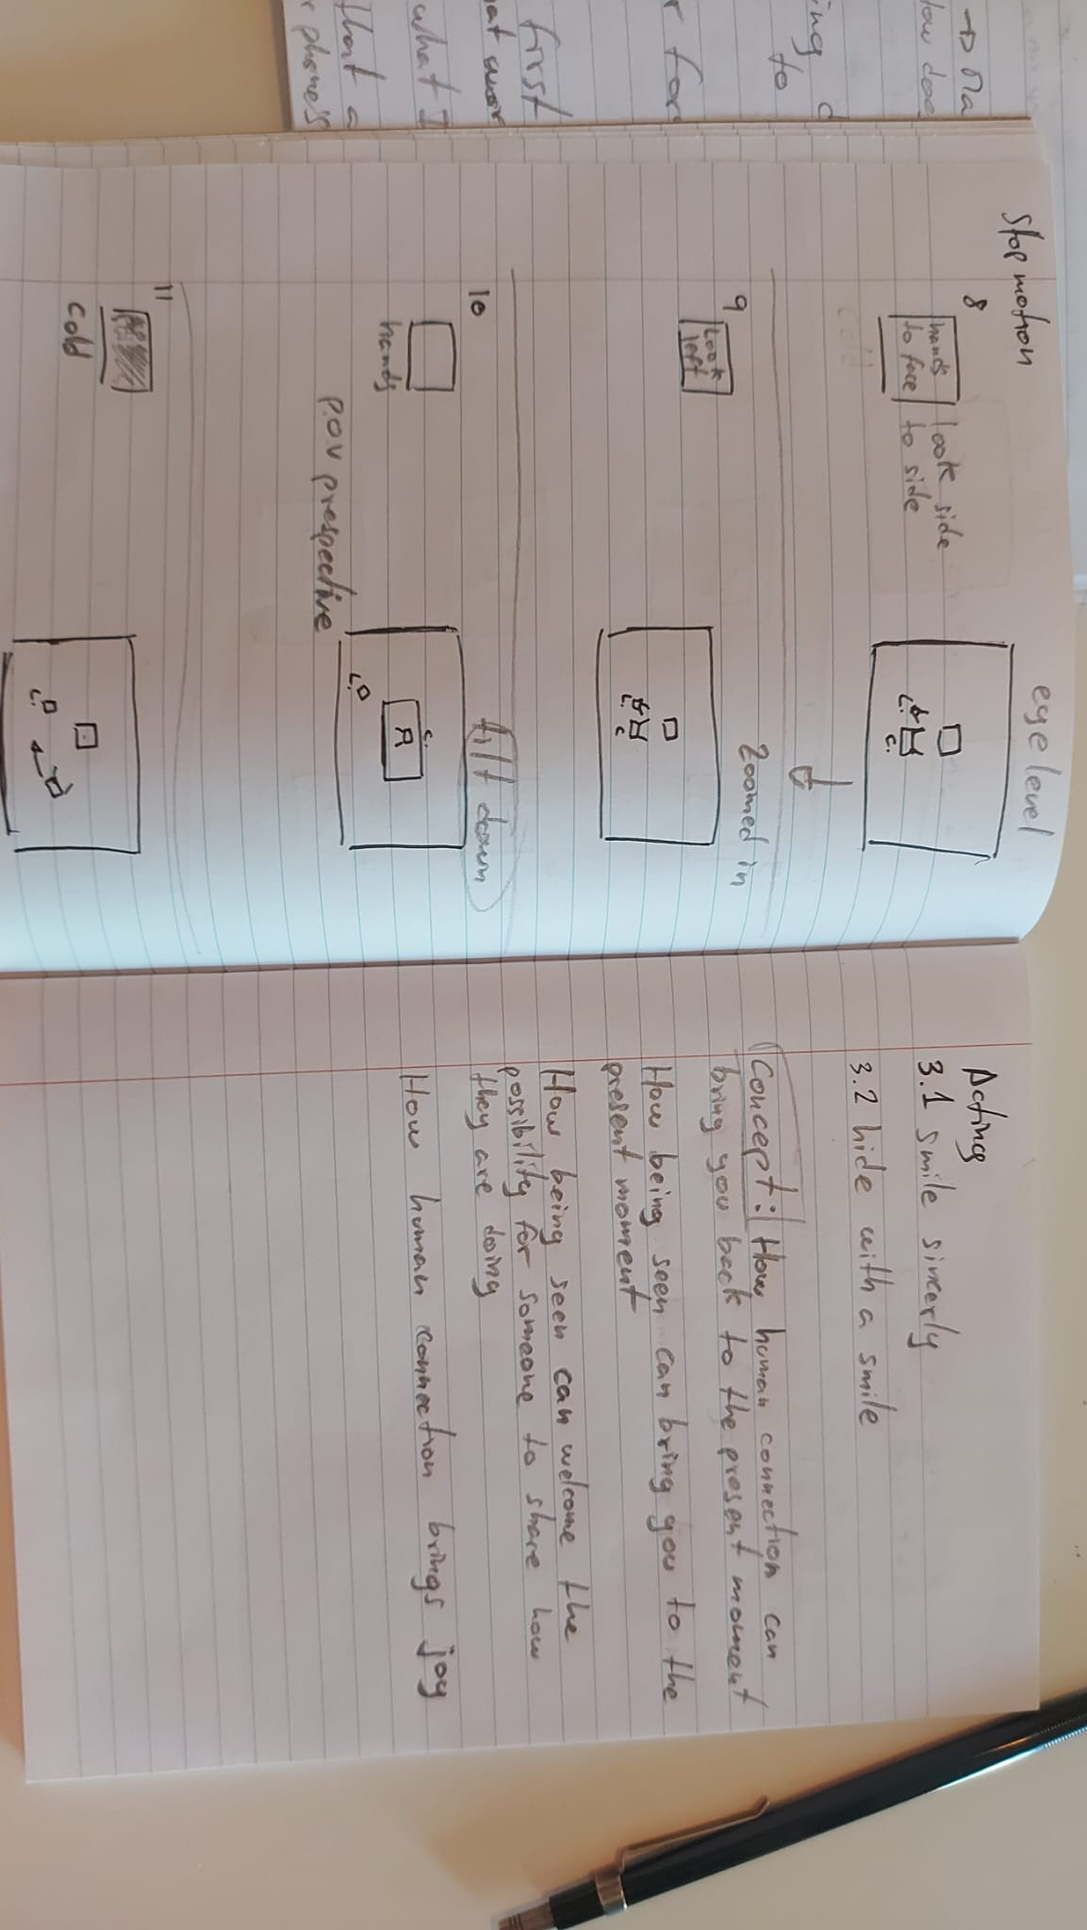 first
what I
that a
phones
stop motion
eye level
8
hands
to face
look side
to side
9
Look
left
Zoomed in
10
hands
tilt down
P.O.V prespective
11
cold
Acting
3.1 smile sincerly
3.2 hide with a smile
Concept: How human connection can
bring you back to the present moment
How being seen can bring you to the
present moment
How being seen can welcome the
possibility for someone to share how
they are doing
How human connection brings joy